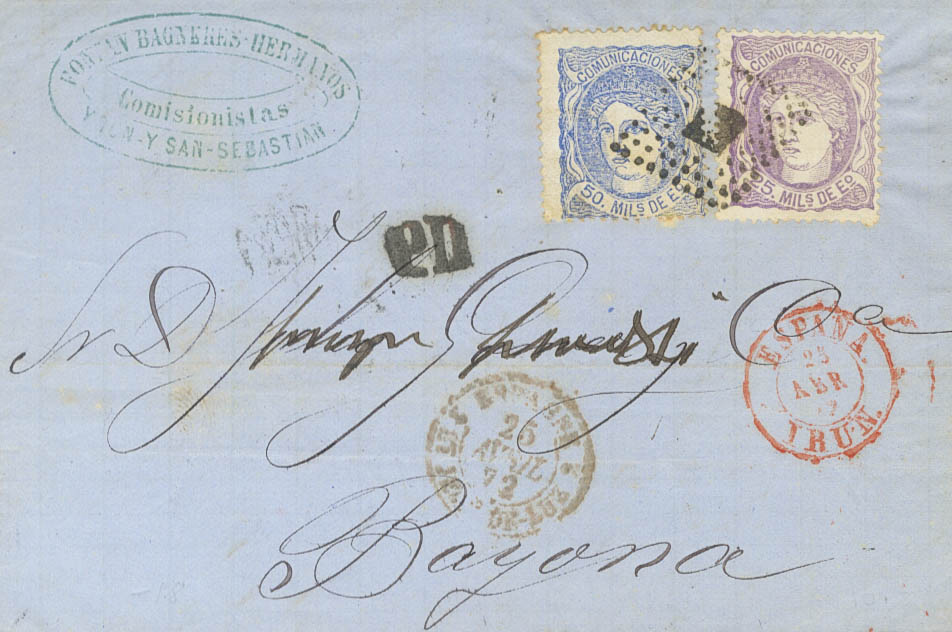 FONTAN BAGNERES-HERMANOS
Comisionistas
YRUN-Y SAN-SEBASTIAN
COMUNICACIONES
50. MILS DE Eo
COMUNICACIONES
25. MILS DE Eo.
PD
Sr D
ESPAÑA.
25
ABR
72
IRUN.
ESPAGNE
26
AVRIL
72
Bayona